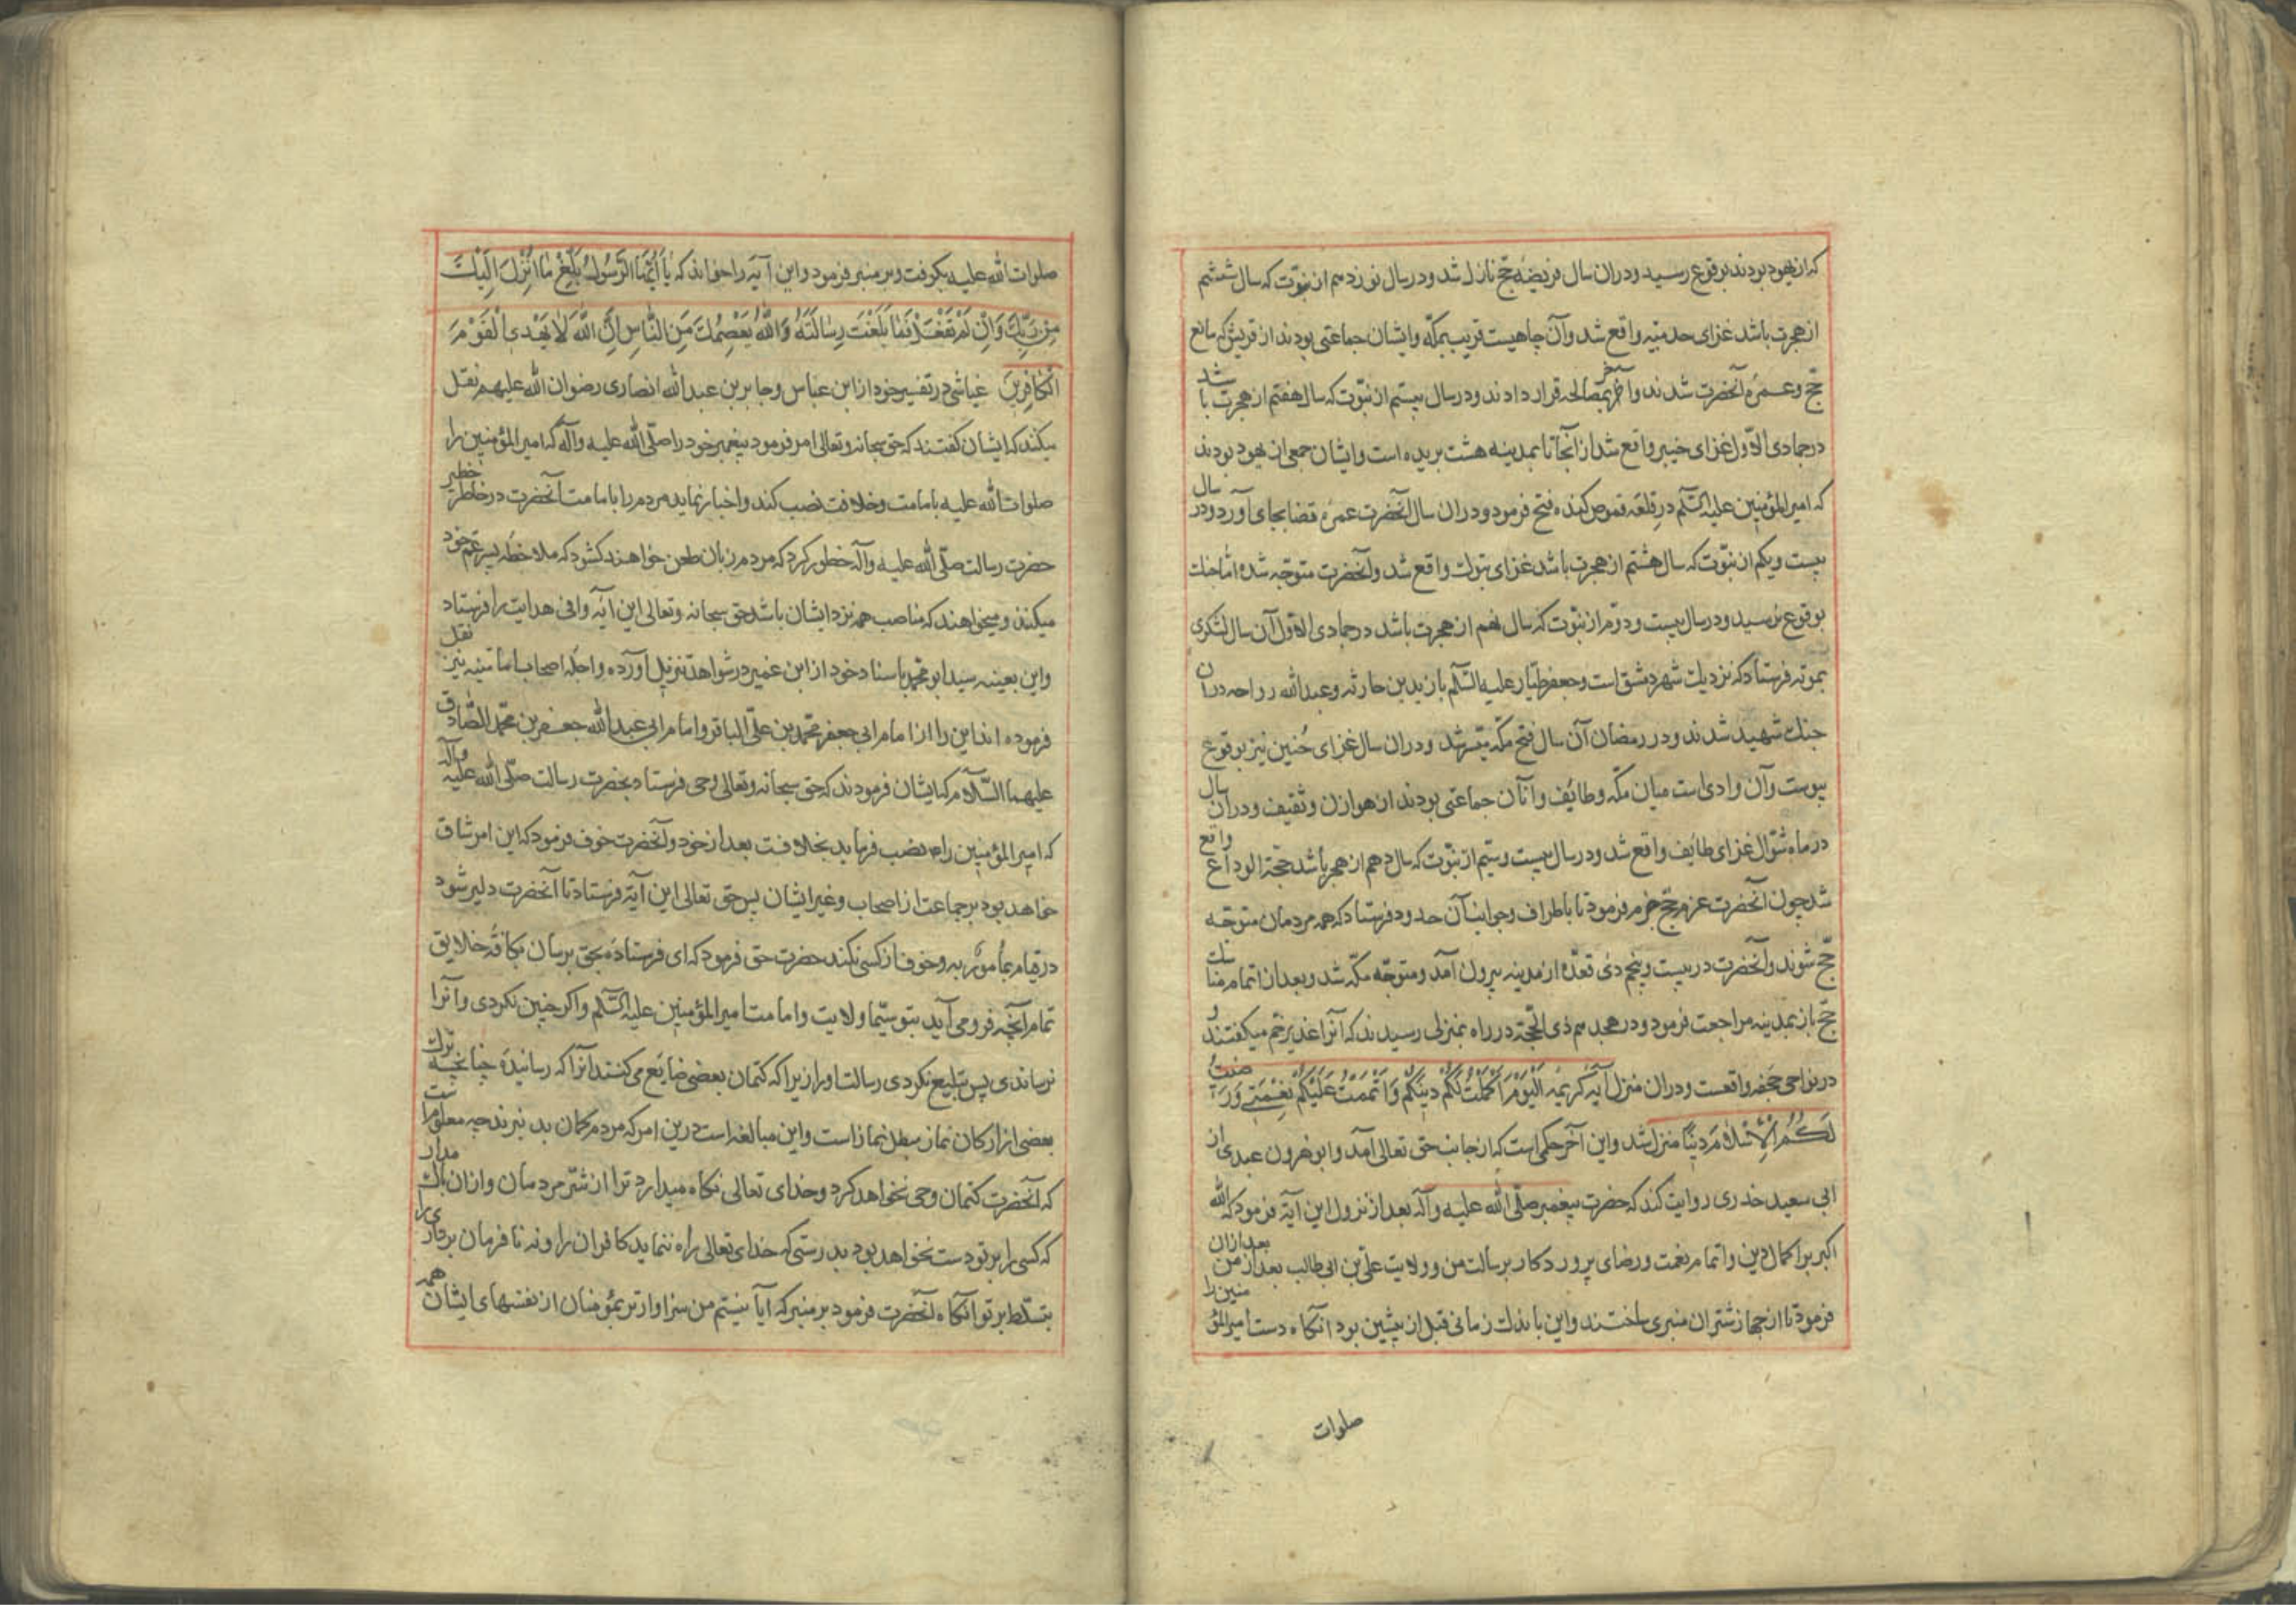 که از یهود بودند بوقوع رسید و دران سال فریضهٔ حج نازل شد و در سال نوزدهم از نبوّت که سال ششم
از هجرت باشد غزای حدیبیه واقع شد وآن چاهیست قریب بمکّه وایشان جماعتی بودند از قریش که مانع
حجّ وعمرهٔ آنحضرت شدند وآخر بمصالحه قرار دادند و در سال بیستم از نبوّت که سال هفتم از هجرت باشد
در جمادی الاوّل غزای خیبر واقع شد از آنجا تا بمدینه هشت برید است وایشان جمعی از یهود بودند
که امیرالمؤمنین علیه السّلم در قلعه قموص کنده فتح فرمود و دران سال آنحضرت عمرهٔ قضا بجای آورد و در سال
بیست ویکم از نبوّت که سال هشتم از هجرت باشد غزای تبوک واقع شد وآنحضرت متوجّه شده امّا جنک
بوقوع نرسید و در سال بیست و دوّم از نبوّت که سال نهم از هجرت باشد در جمادی الاوّل آن سال لشکری
بموته فرستاد که نزدیک شهر دمشق است وجعفر طیّار علیه السّلم با زید بن حارثه وعبدالله رواحه دران
جنک شهید شدند و در رمضان آن سال فتح مکّه میسّر شد ودران سال غزای حُنین نیز بوقوع
پیوست وآن وادی است میان مکّه وطائف وآنان جماعتی بودند از هوازن وثقیف ودران سال
در ماه شوّال غزای طایف واقع شد ودر سال بیست وسیّم از نبوّت که سال دهم از هجر باشد حجّة الوداع واقع
شد چون آنحضرت عزم حجّ جزم فرمود تا باطراف وجوانب آن حدود فرستاد که همه مردمان متوجّه
حجّ شوند وآنحضرت در بیست وپنجم ذی قعدّه از مدینه بیرون آمد ومتوجّه مکّه شد وبعد از اتمام مناسک
حجّ باز بمدینه مراجعت فرمود ودر هجدهم ذی الحجّة در راه بمنزلی رسیدند که آنرا غدیر خم میکفتند و
در نواحی جحفه واقعست ودران منزل آیهٔ کریمهٔ اَلْیَوْمَ اَکْمَلْتُ لَکُمْ دِینَکُمْ وَاَتْمَمْتُ عَلَیْکُمْ نِعْمَتِی وَرَضیتُ
لَکُمُ الْاِسْلامَ دِیناً منزل شد واین آخر حکمی است که از جانب حق تعالی آمد وابو هرون عبدی از
ابی سعید خدری روایت کند که حضرت پیغمبر صلّی الله علیه وآله بعد از نزول این آیة فرمود که الله
اکبر بر اکمال دین واتمام نعمت ورضای پروردکار برسالت من وولایت علی بن ابی طالب بعد از من بعد ازان
فرمود تا از جهاز شتران منبری ساختند واین باندک زمانی قبل از پیشین بود آنکاه دست امیرالمؤمنین را
صلوات
صلوات الله علیه بکرفت وبر منبر فرمود واین آیة را خواند که یا اَیُّهَا الرَّسُولُ بَلِّغْ ما اُنْزِلَ اِلَیْکَ
مِنْ رَبِّکَ وَاِنْ لَمْ تَفْعَلْ فَما بَلَّغْتَ رِسالَتَهُ وَاللّٰهُ یَعْصِمُکَ مِنَ النّاسِ اِنَّ اللّٰهَ لا یَهْدِی الْقَوْمَ
الْکافِرینَ عیاشی در تفسیر خود از ابن عباس وجابر بن عبدالله انصاری رضوان الله علیهم نقل
میکند که ایشان کفتند که حق سبحانه وتعالی امر فرمود پیغمبر خود را صلّی الله علیه وآله که امیرالمؤمنین را
صلوات الله علیه بامامت وخلافت نصب کند واخبار نماید مردم را بامامت آنحضرت در خاطر خطیر
حضرت رسالت صلّی الله علیه وآله خطور کرد که مردم زبان طعن خواهند کشود که ملاحظه پسر عمّ خود
میکند ومیخواهند که مناصب همه نزد ایشان باشد حق سبحانه وتعالی این آیهٔ وافی هدایت را فرستاد
واین بعینه سید ابو محمد باسناد خود از ابن عمیر در شواهد تنزیل آورده واجلّه اصحاب امامیّه نیز نقل
فرموده اند این را از امام ابی جعفر محمّد بن علیّ الباقر وامام ابی عبدالله جعفر بن محمّد الصّادق
علیهما السّلام که ایشان فرمودند که حق سبحانه وتعالی وحی فرستاد بحضرت رسالت صلّی الله علیه وآله
که امیرالمؤمنین را نصب فرماید بخلافت بعد از خود وآنحضرت خوف فرمود که این امر شاق
خواهد بود بر جماعت از اصحاب وغیر ایشان پس حق تعالی این آیة فرستاد تا آنحضرت دلیر شود
در قیام بمأمور به وخوف از کسی نکند حضرت حق فرمود که ای فرستادهٔ بحق برسان بکافهٔ خلایق
تمام آنچه فرو می آید بتو سیّما ولایت وامامت امیرالمؤمنین علیه السّلم واکر چنین نکردی وآنرا
نرساندی پس تبلیغ نکردی رسالت او را زیرا که کتمان بعضی ضایع می کند آنرا که رسانیدهٔ چنانچه ترک
بعضی از ارکان نماز مبطل نماز است واین مبالغه است درین امر که مردم کمان بد نبرند چه معلومست
که آنحضرت کتمان وحی نخواهد کرد وخدای تعالی نکاه میدارد ترا از شرّ مردمان وازان باک مدار
که کسی را بر تو دست نخواهد بود بدرستی که خدای تعالی راه ننماید کافران را ونه نا فرمان برداری را
بتسلّط بر تو آنکاه آنحضرت فرمود بر منبر که آیا نیستم من سزاوارتر بمؤمنان از نفسهای ایشان همه